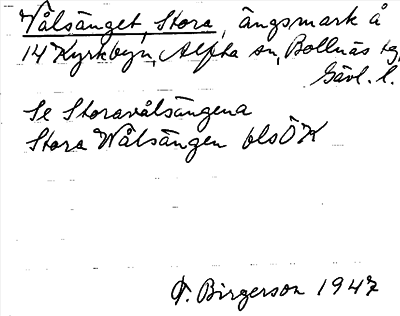 Vålsänget, Stora, ängsmark å
14 Kyrkbyn, Alfta sn, Bollnäs tg,
Gävl. l.
Se Storavålsängena
Stora Wålsängen blsÖK
F. Birgerson 1947